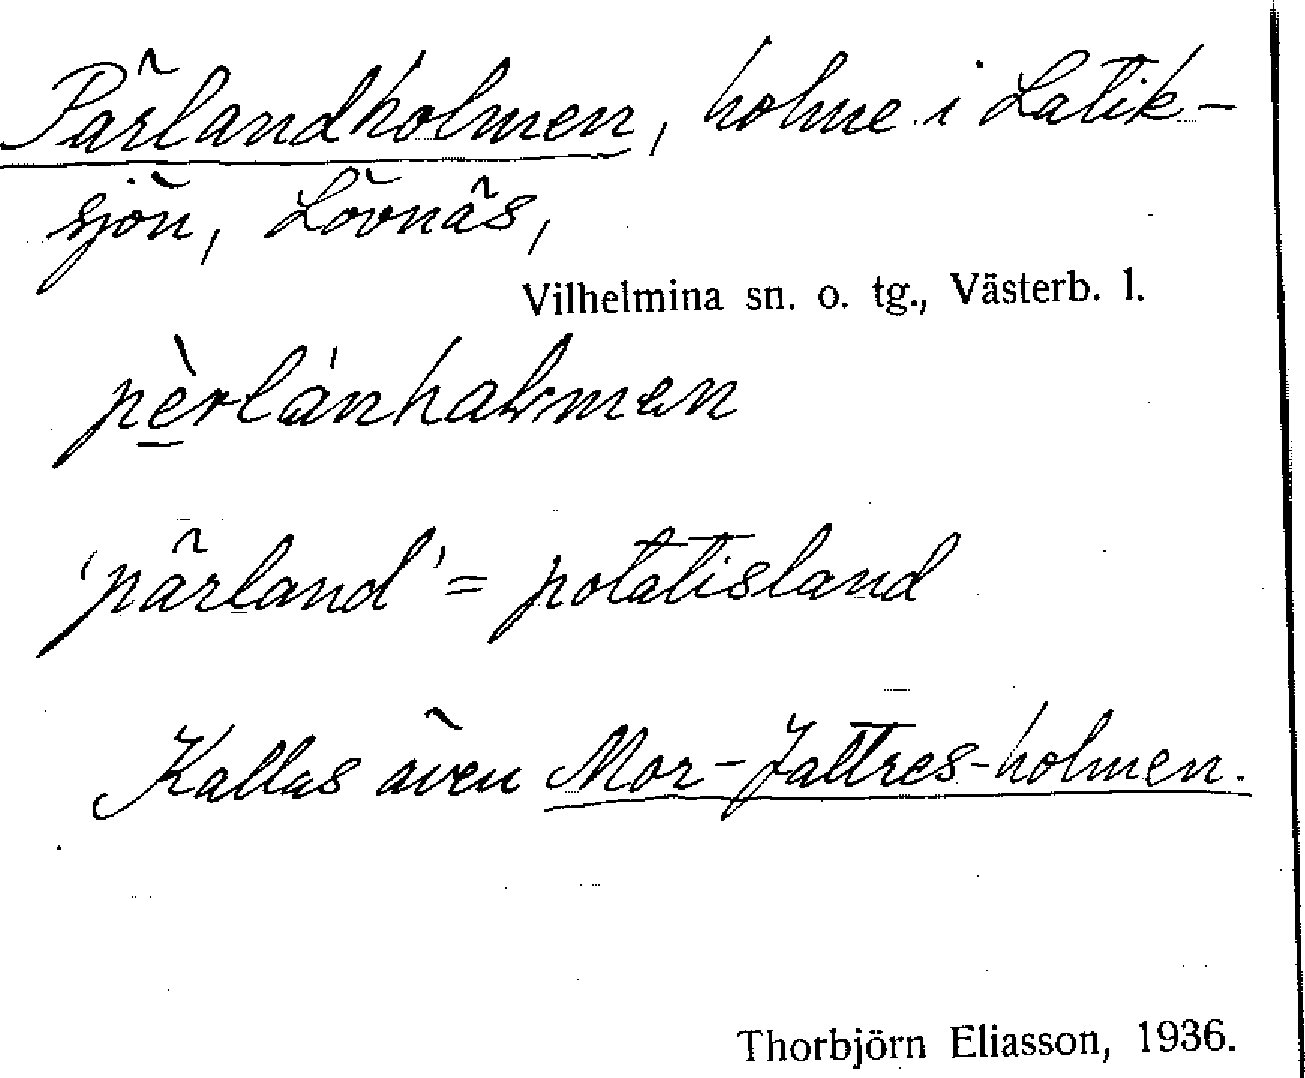 Pärlandholmen, holme i Latik-
sjön, Lövnäs,
Vilhelmina sn. o. tg., Västerb. l.
pèrlánhalmen
'pärland' = potatisland
Kallas även Mor-Jattres-holmen.
Thorbjörn Eliasson, 1936.